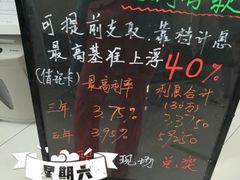 可提前支取，靠档计息
最高基准上浮40%
(借记卡) 最高利率 利息合计
三年 3.75%
五年 3.95% 59250
现场兑奖
星期六